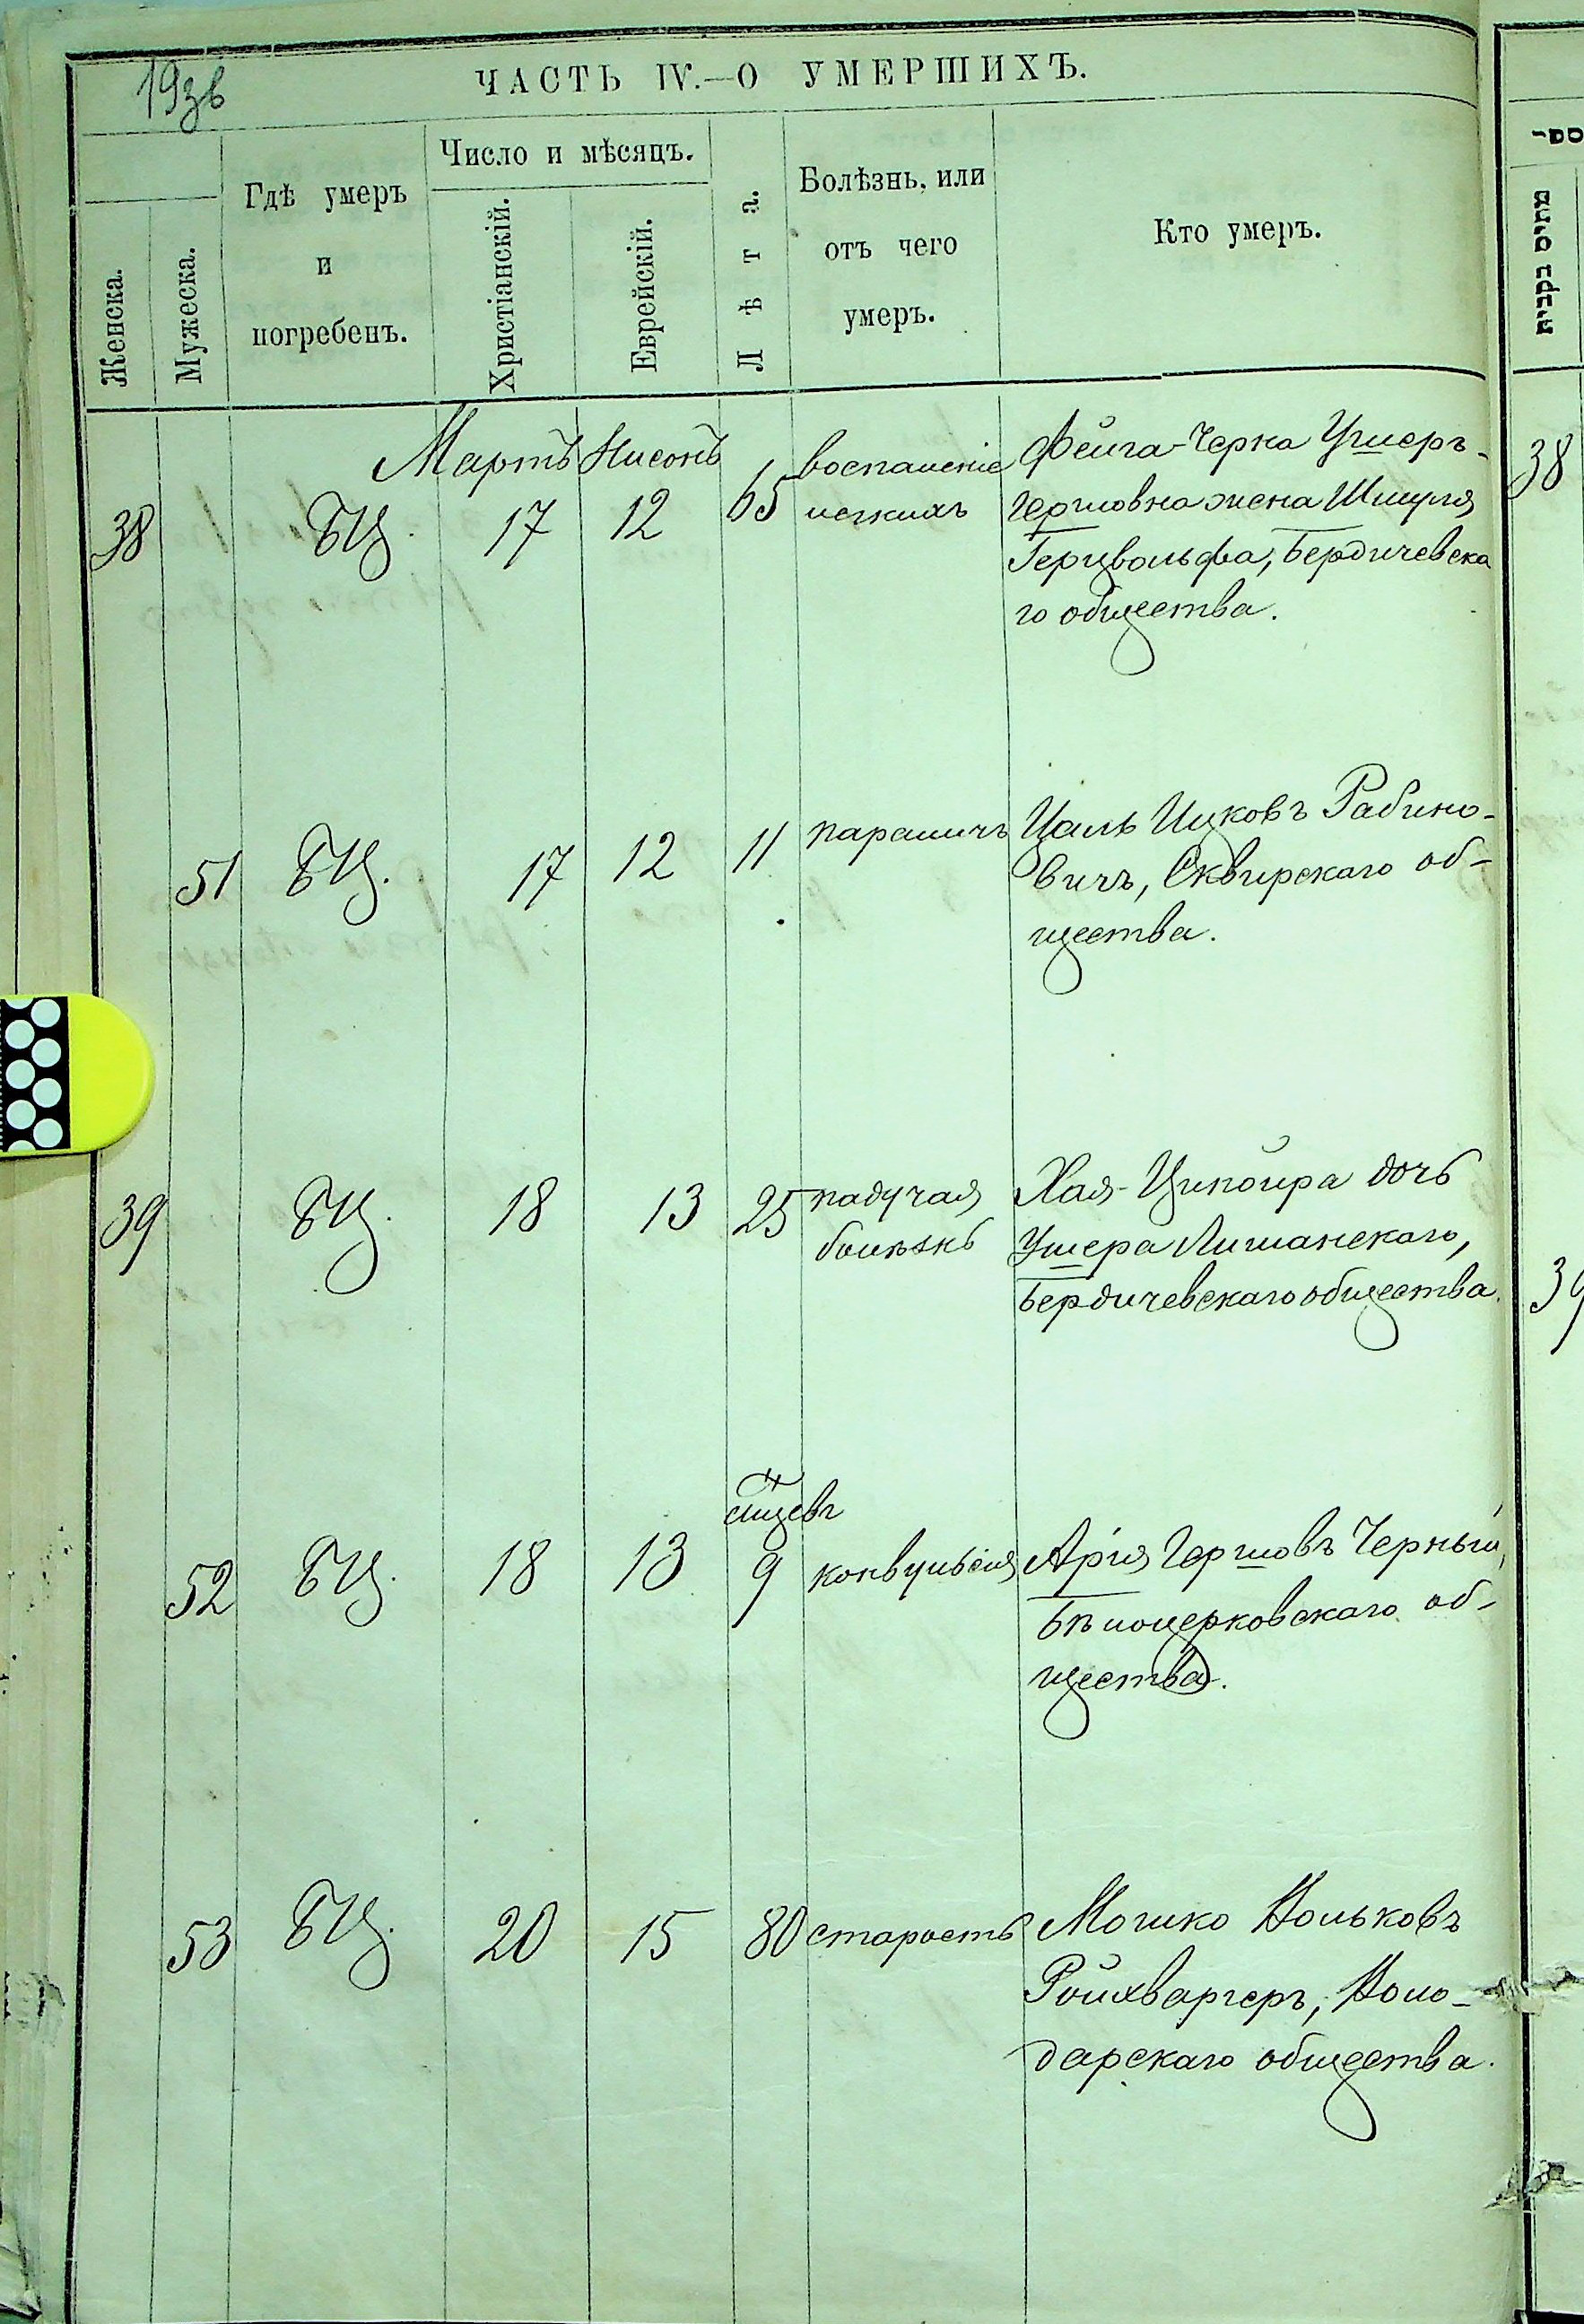 193в
ЧАСТЬ IV.—О УМЕРШИХЪ.
Женска.
Мужеска.
Гдѣ умеръ
и
погребенъ.
Число и мѣсяцъ.
Христіанскій.
Еврейскій.
Лѣта.
Болѣзнь, или
отъ чего
умеръ.
Кто умеръ.
Мартъ Нисонъ
38 БЦ. 17 12 65 воспаленіе
легкихъ
Фейга-Черна Ушеръ-
Гершовна жена Шмуля
Герцвольфа, Бердичевска
го общества.
38
51 БЦ. 17 12 11 параличъ
Цаль Ицковъ Рабино-
вичъ, Сквирскаго об-
щества.
39 БЦ. 18 13 25 падучая
болѣзнь
Хая-Ципойра дочь
Ушера Лишанскаго,
Бердичевскаго общества.
39
52 БЦ. 18 13 мцевъ
9 конвульсія
Арія Гершовъ Черный,
Бѣлоцерковскаго об-
щества.
53 БЦ. 20 15 80 старость
Мошко Вольковъ
Ройхваргеръ, Воло-
дарскаго общества.